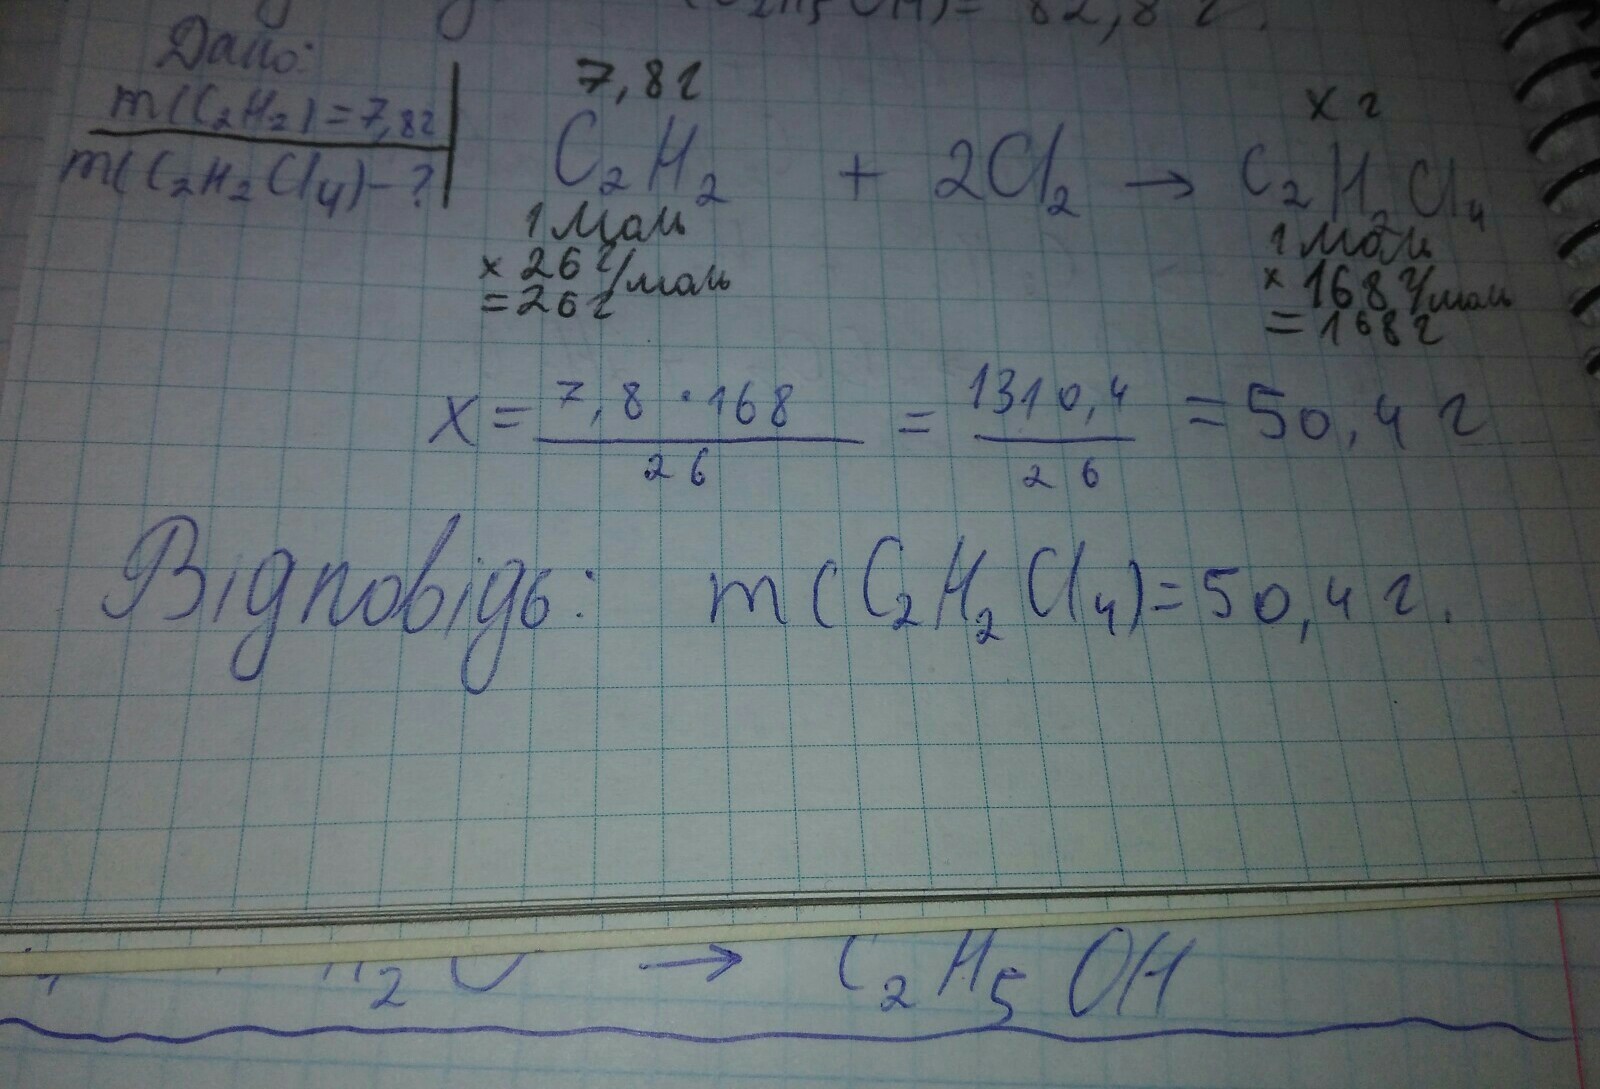 (C₂H₅OH) = 82,8 г.
Дано:
m(C₂H₂) = 7,8г
m(C₂H₂Cl₄) - ?
7,8г x г
C₂H₂ + 2Cl₂ → C₂H₂Cl₄
1 моль 1 моль
× 26 г/моль × 168 г/моль
= 26 г = 168 г
x = 7,8 · 168 / 26 = 1310,4 / 26 = 50,4 г
Відповідь: m(C₂H₂Cl₄) = 50,4 г.
H₂O → C₂H₅OH